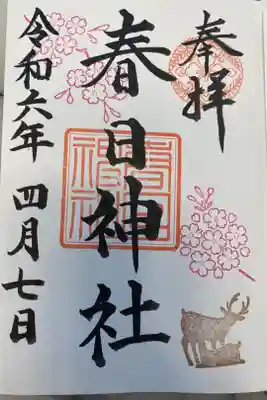 奉拝
春日神社
令和六年 四月七日